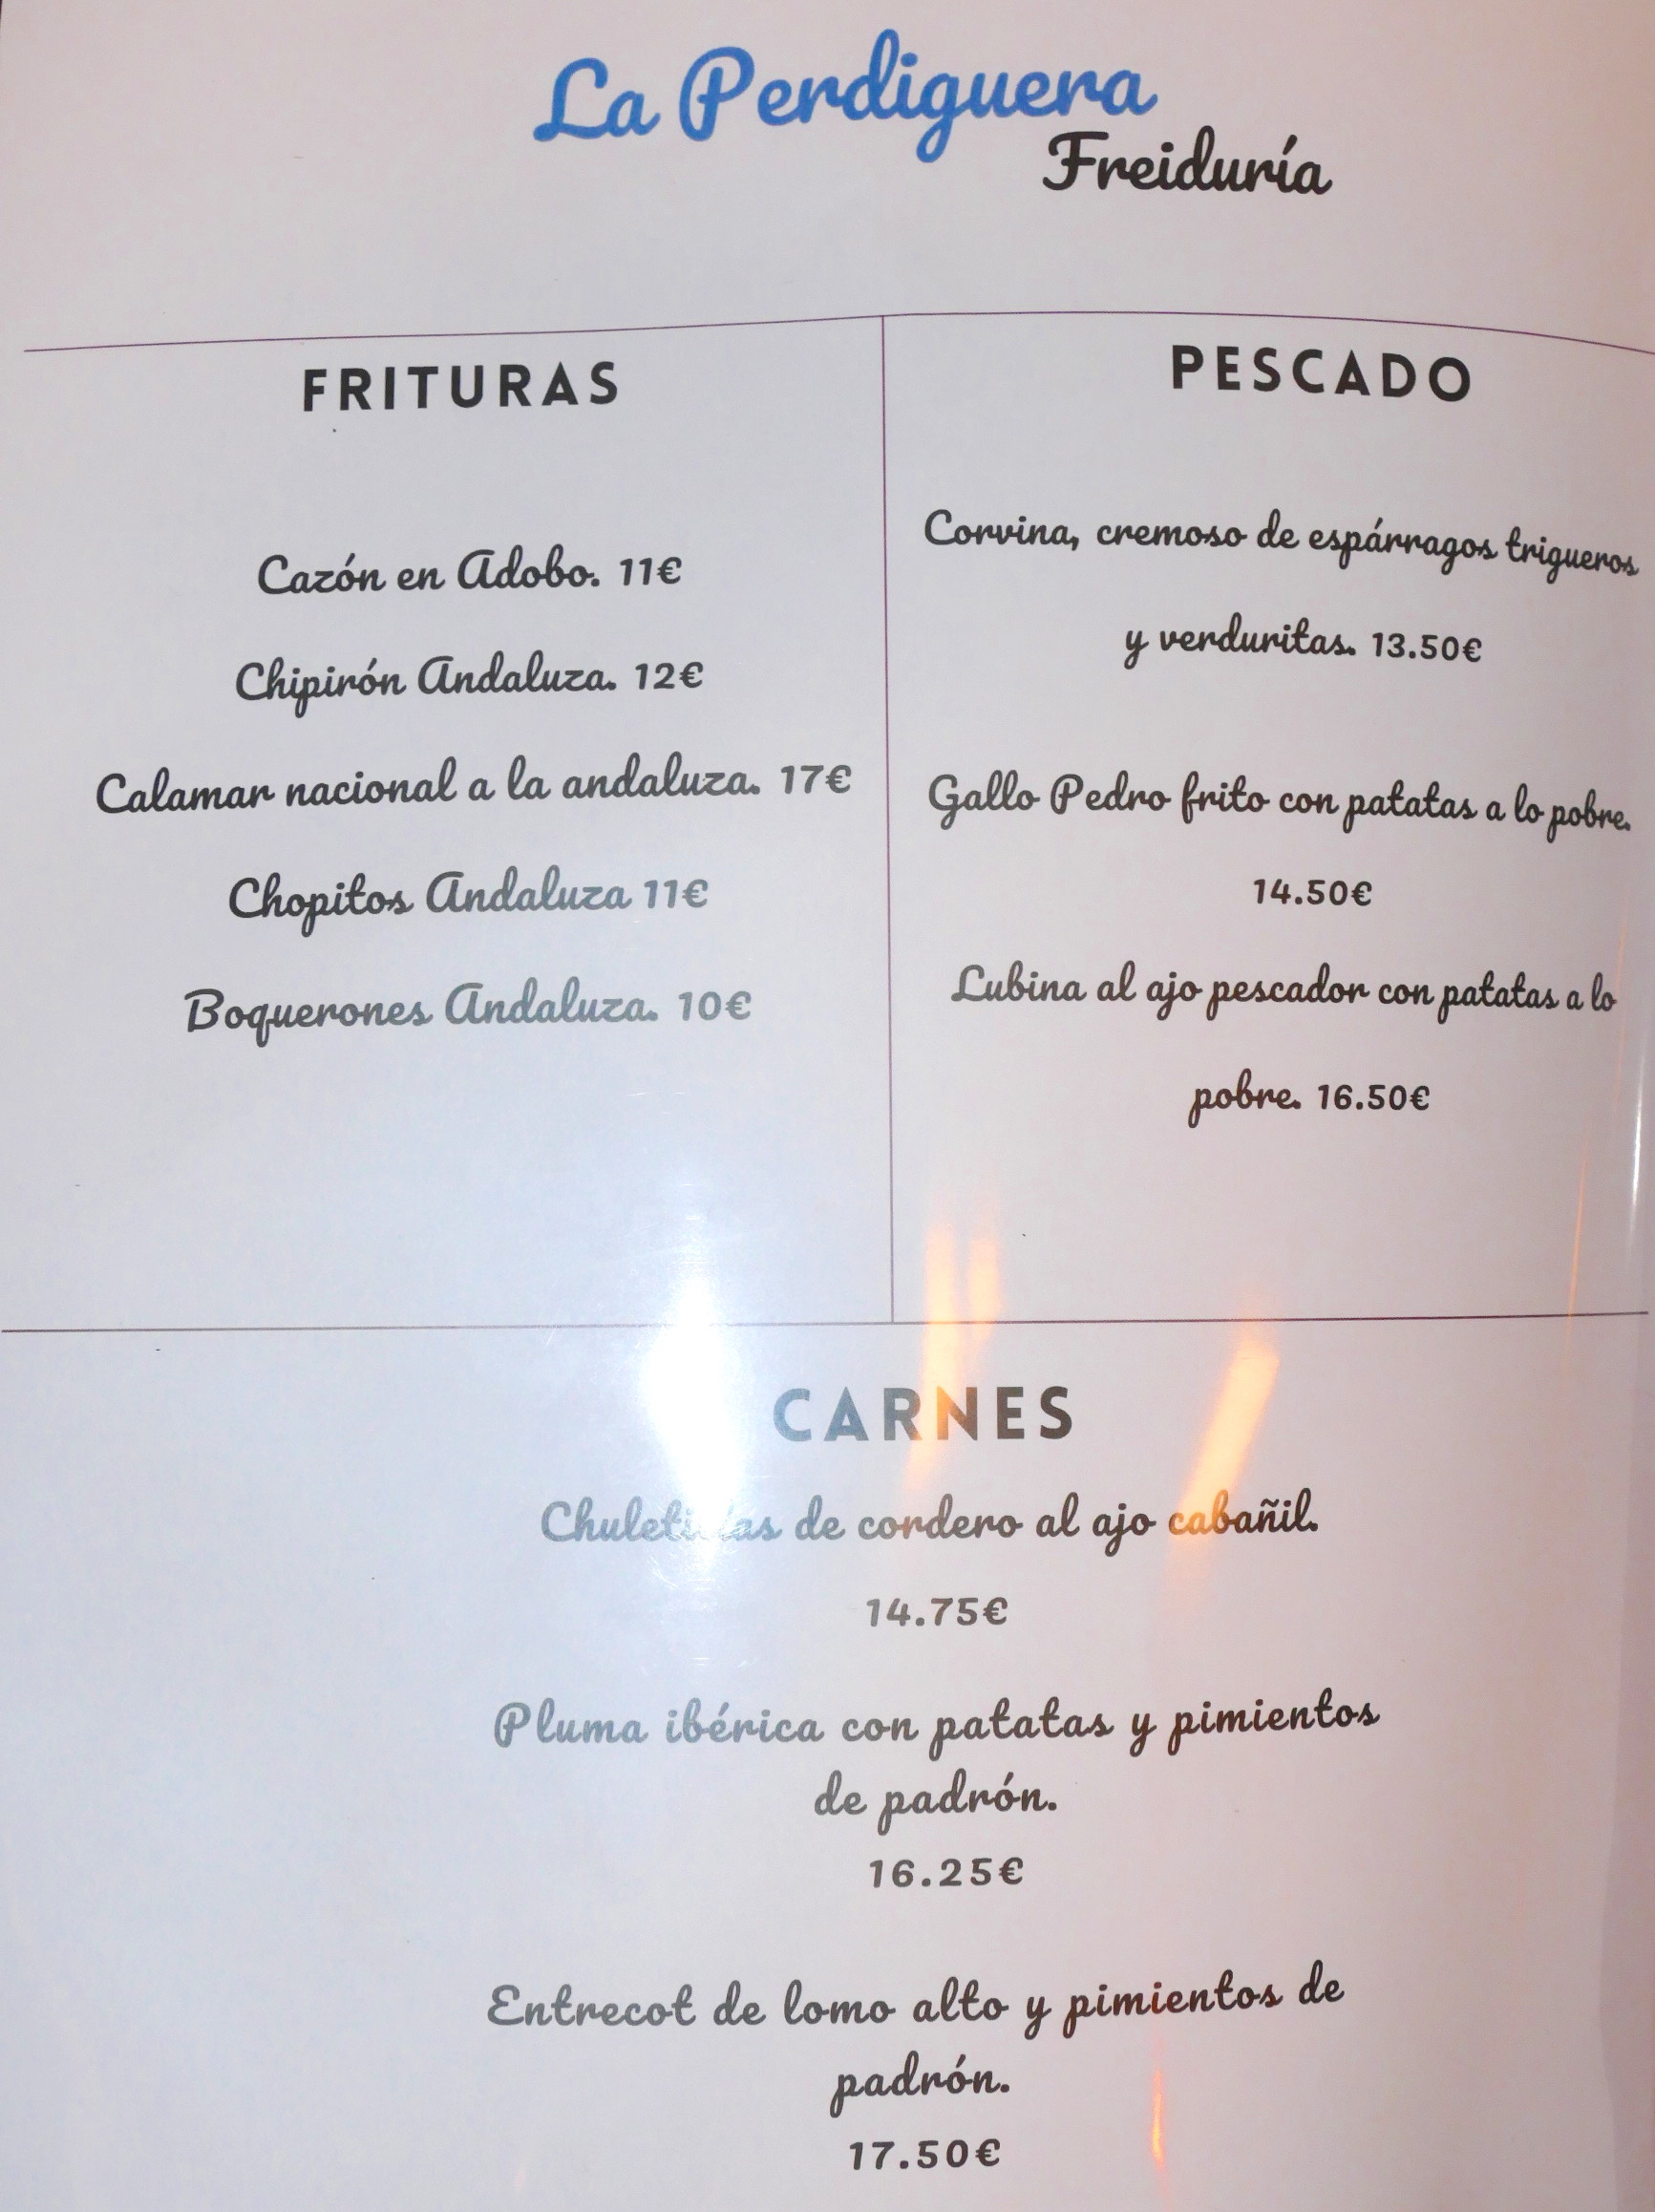 La Perdiguera
Freiduría
FRITURAS
Cazón en Adobo. 11€
Chipirón Andaluza. 12€
Calamar nacional a la andaluza. 17€
Chopitos Andaluza 11€
Boquerones Andaluza. 10€
PESCADO
Corvina, cremoso de espárragos trigueros
y verduritas. 13.50€
Gallo Pedro frito con patatas a lo pobre.
14.50€
Lubina al ajo pescador con patatas a lo
pobre. 16.50€
CARNES
Chuletillas de cordero al ajo cabañil.
14.75€
Pluma ibérica con patatas y pimientos
de padrón.
16.25€
Entrecot de lomo alto y pimientos de
padrón.
17.50€